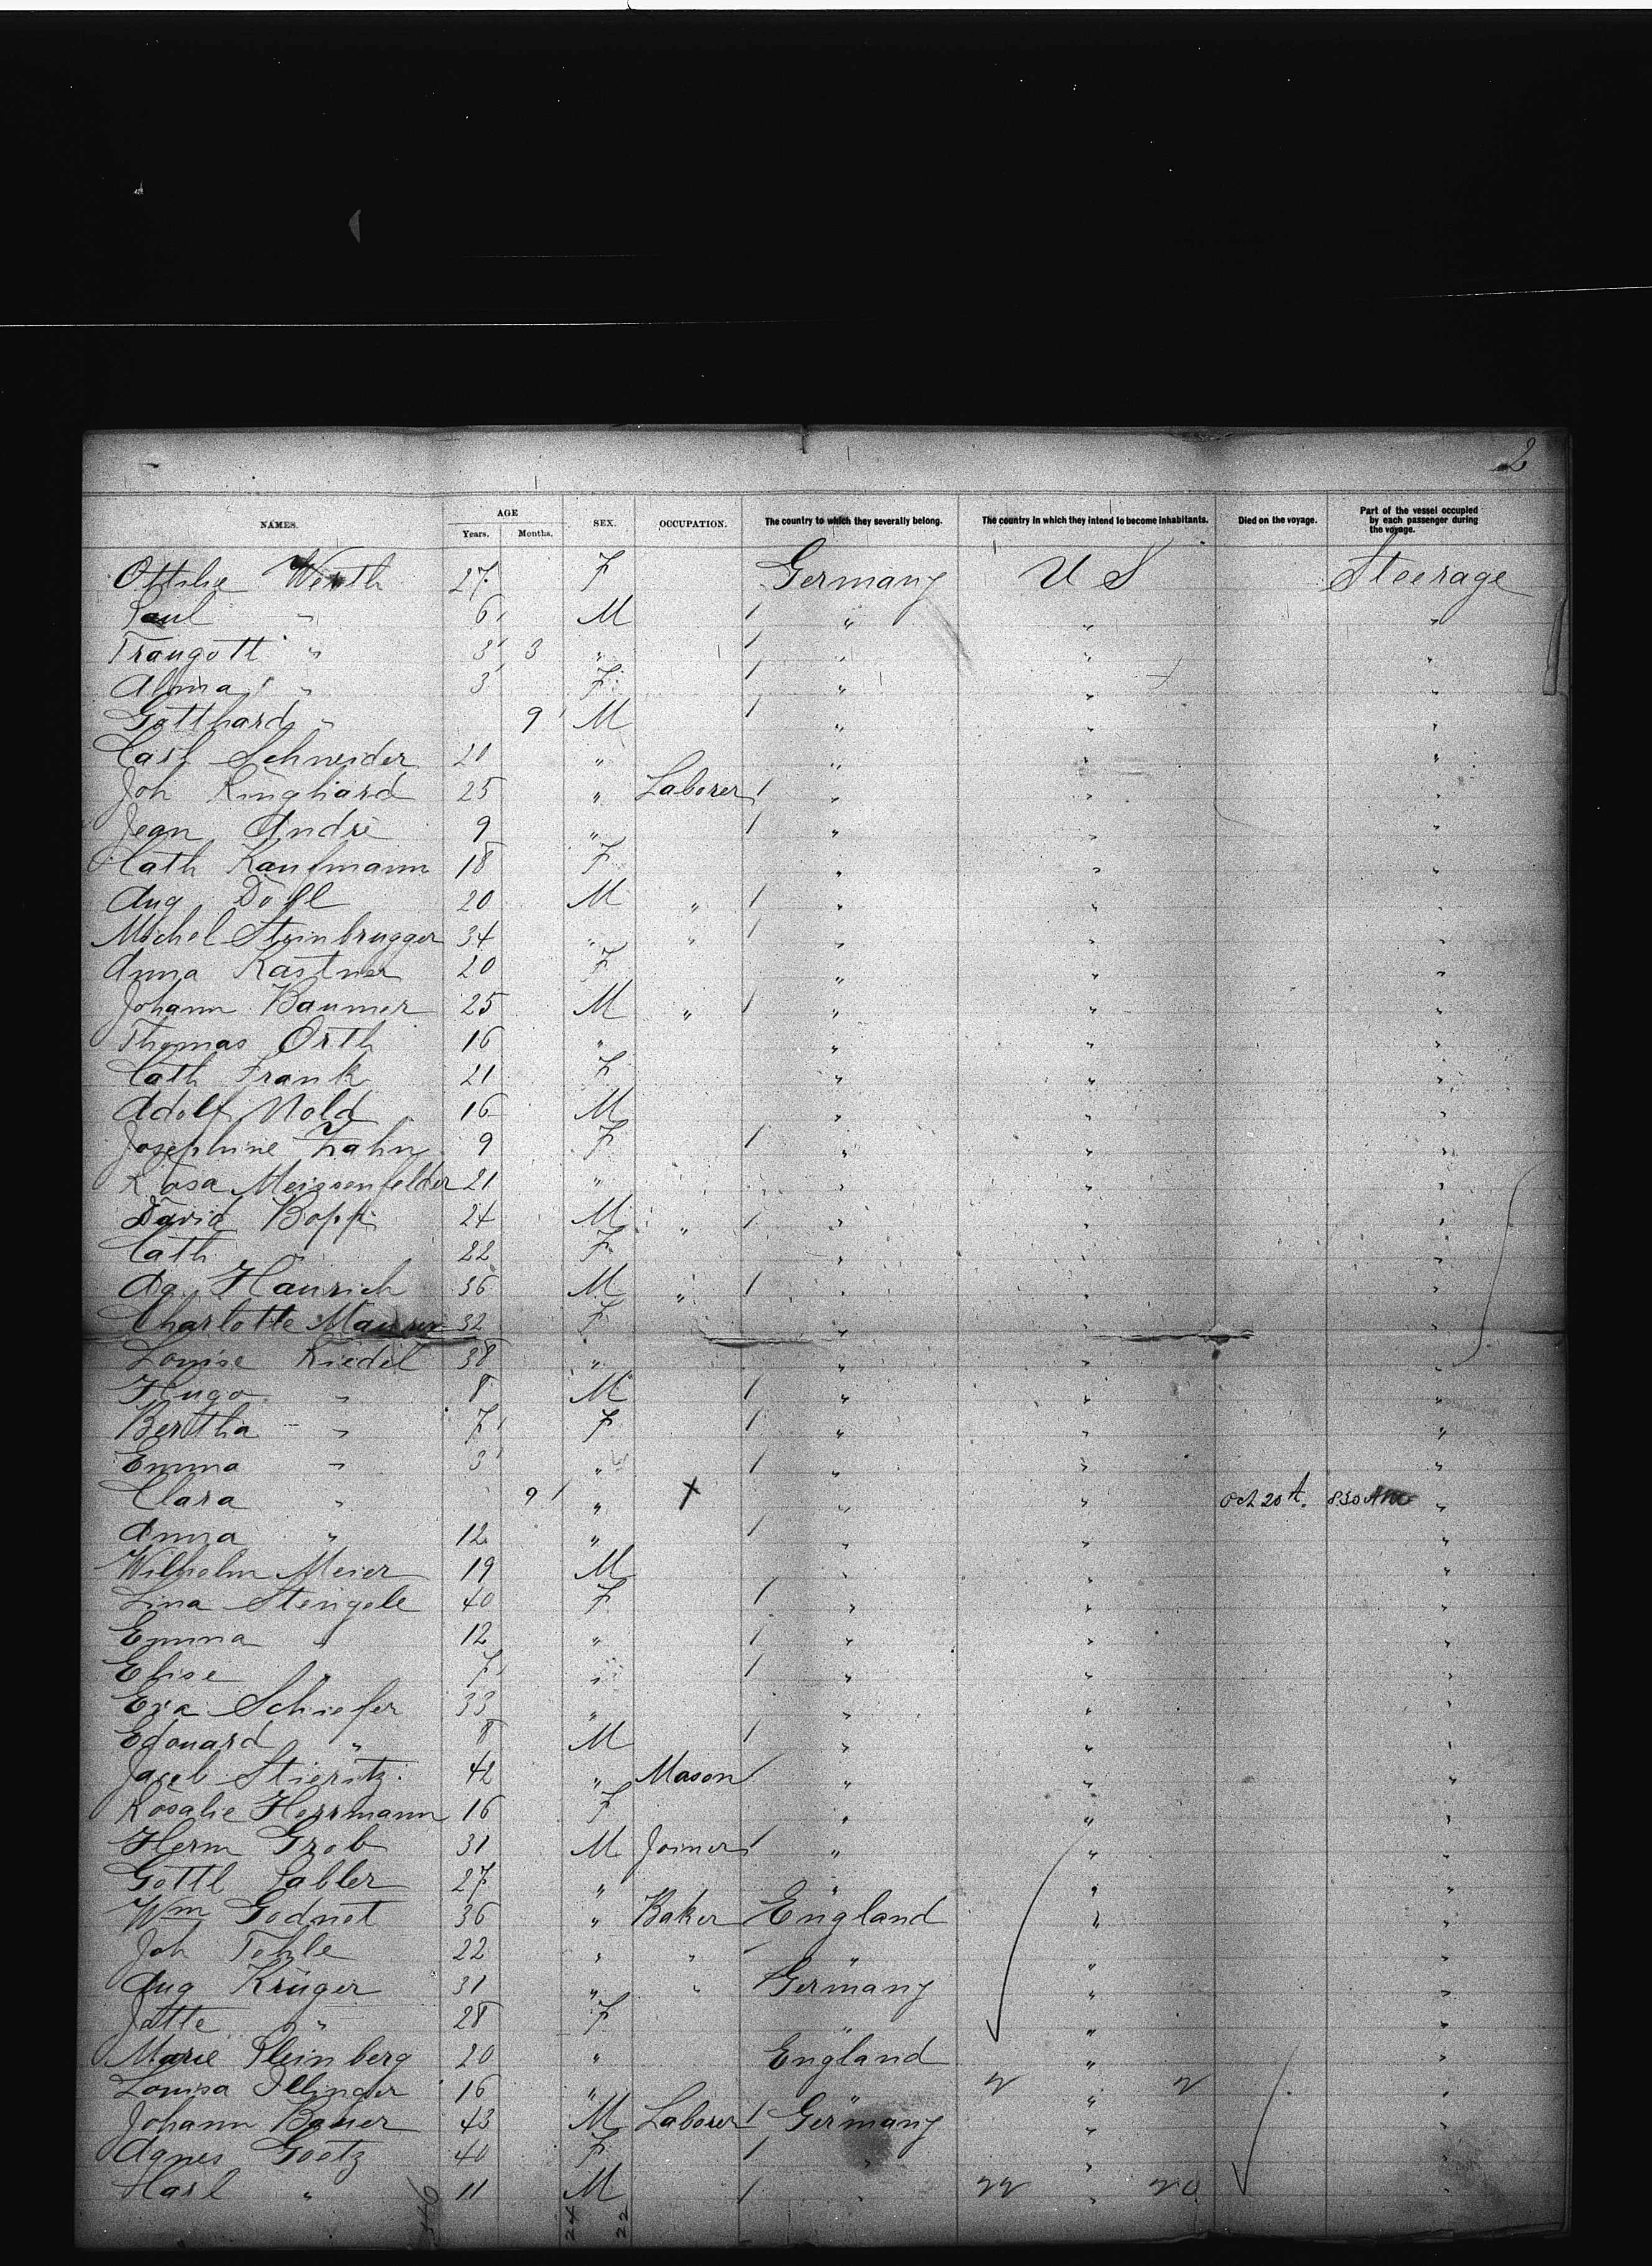 2
NAMES. AGE Years. Months. SEX. OCCUPATION. The country to which they severally belong. The country in which they intend to become inhabitants. Died on the voyage. Part of the vessel occupied by each passenger during the voyage.
Ottilie Werth 27 F Germany U S Steerage
Paul " 6 M " " "
Traugott " 3 3 " " " "
Alma " 3 F " " "
Gotthard " 9 M " " "
Carl Schneider 20 " " " "
Joh Ringhard 25 " Laborer " " "
Jean André 9 " " " "
Cath Kaufmann 18 F " " "
Aug Döll 20 M " " " "
Michel Steinbrugger 34 " " " " "
Anna Kastner 20 F " " "
Johann Baumer 25 M " " " "
Thomas Orth 16 " " " "
Cath Frank 21 F " " "
Adolf Nold 16 M " " "
Josephine Zahn 9 F " " "
Rosa Meissenfelder 21 " " " "
David Bopp 24 M " " " "
Cath " 22 F " " "
Hanrich 36 M " " " "
Charlotte Maurer 32 F " " "
Louise Riedel 38 " " " "
Hugo " 8 M " " "
Bertha " 7 F " " "
Emma " 3 " " " "
Clara " 9 " X " " Oct 20th. 8.30 AM "
Anna " 12 " " " "
Wilhelm Meier 19 M " " "
Lina Stengele 40 F " " "
Emma " 12 " " " "
Elise " 7 " " " "
Eva Schiefer 33 " " " "
Edouard " 8 M " " "
Jacob Stieritz 42 " Mason " " "
Rosalie Herrmann 16 F " " "
Herm Grob 31 M Joiner " " "
Gottl 27 " " " "
Wm Godnot 36 " Baker England " "
Joh Tehle 22 " " " " "
Aug Krüger 31 " " Germany " "
Jatte " 28 F " " "
Marie Steinberg 20 " England " "
Louisa Illinger 16 " " " "
Johann Bauer 43 M Laborer Germany " "
Agnes Goetz 40 F " " "
Karl " 11 M " " "
24 22